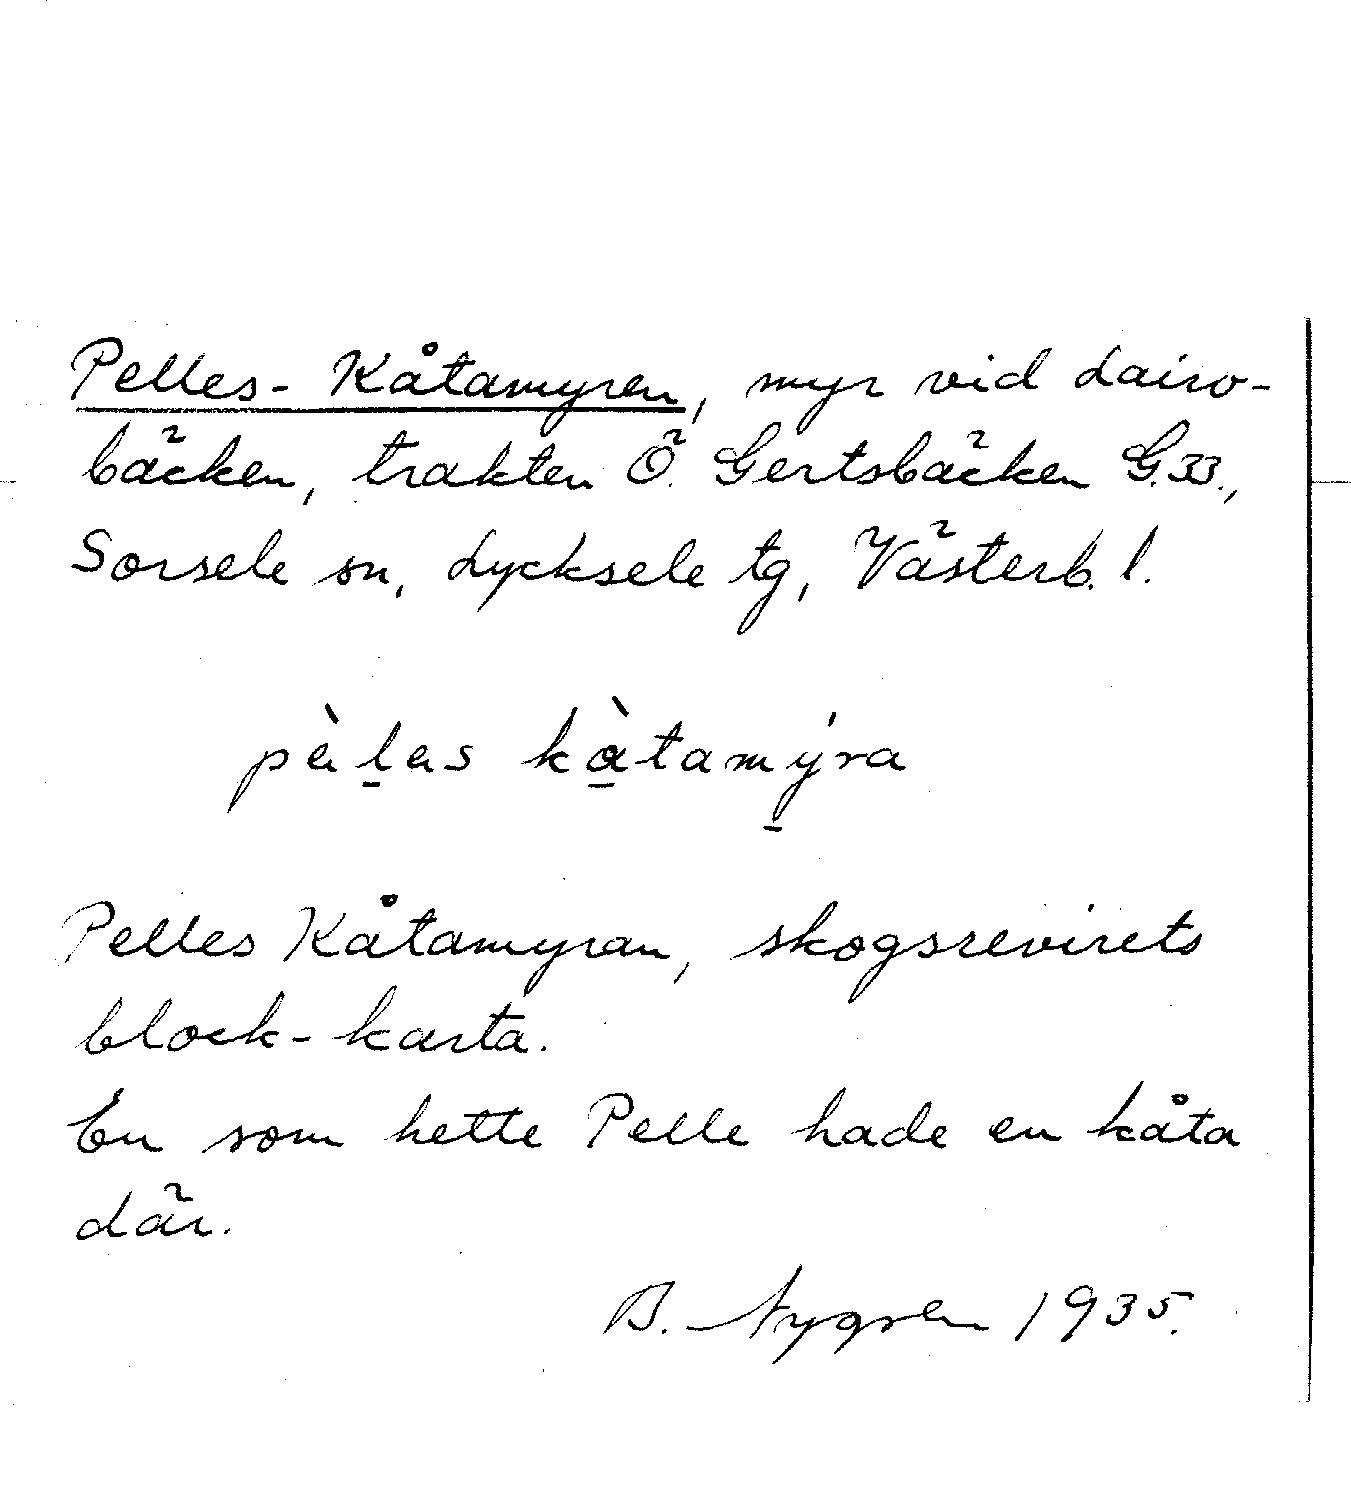 Pelles-Kåtamyren, myr vid Lairo-
bäcken, trakten Ö. Gertsbäcken G.33.,
Sorsele sn, Lycksele tg, Västerb. l.
pèl̲as kà̲tamý̲ra
Pelles Kåtamyran, skogsrevirets
block-karta.
En som hette Pelle hade en kåta
där.
B. Nygren 1935.